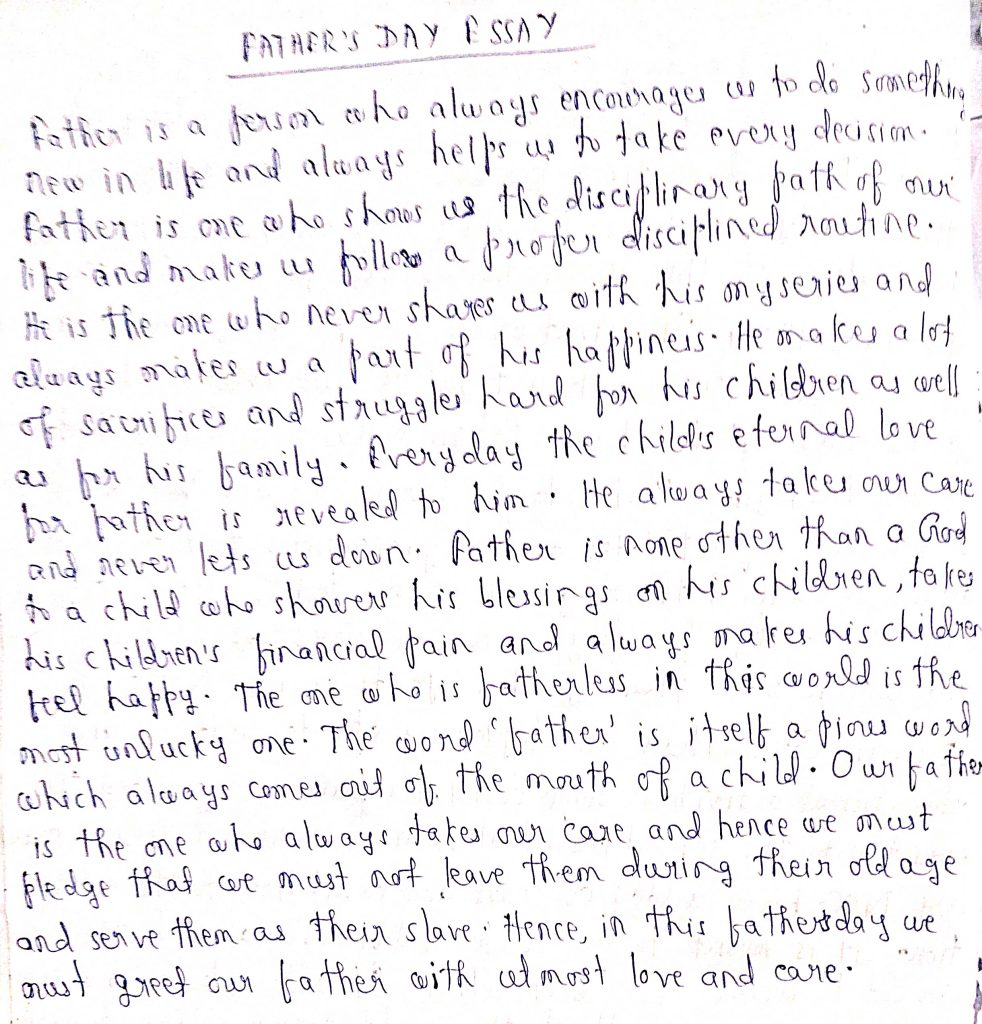 FATHER'S DAY ESSAY
Father is a person who always encourages us to do something
new in life and always helps us to take every decision.
Father is one who shows us the disciplinary path of our
life and makes us follow a proper disciplined routine.
He is the one who never shares us with his myseries and
always makes us a part of his happiness. He makes a lot
of sacrifices and struggles hard for his children as well
as for his family. Everyday the child's eternal love
for father is revealed to him. He always takes our care
and never lets us down. Father is none other than a God
to a child who showers his blessings on his children, takes
his children's financial pain and always makes his children
feel happy. The one who is fatherless in this world is the
most unlucky one. The word 'father' is itself a pious word
which always comes out of the mouth of a child. Our father
is the one who always takes our care and hence we must
pledge that we must not leave them during their old age
and serve them as their slave. Hence, in this fathersday we
must greet our father with utmost love and care.